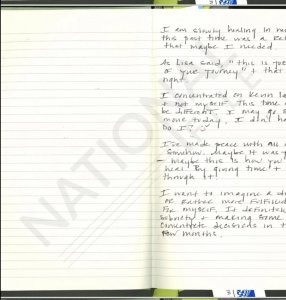 I am slowly healing in
this past time was a
that maybe I needed.
As Lisa said, "this is
of your journey" + that
right.
I concentrated on Kevin
+ not myself. This time
be different. I may go
more today. I don't
Do I?
I've made peace with all
Somehow. Maybe it was
- maybe this is how you
heal. By giving time +
through it!
I want to imagine a
or rather more fulfilled
for myself. It definitely
sobriety + making some
concrete decisions in
few months.
NATION